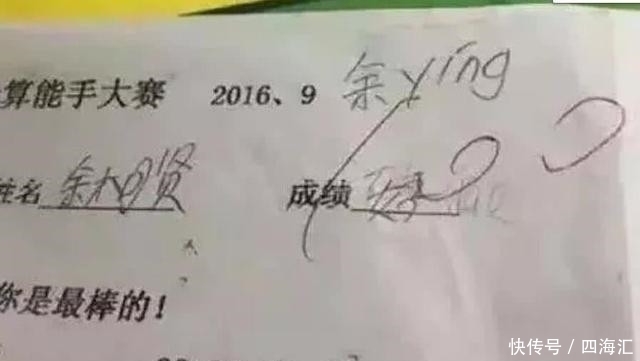 算能手大赛 2016、9 余ying
姓名 余大明贤 成绩
你是最棒的！
快传号 / 四海汇